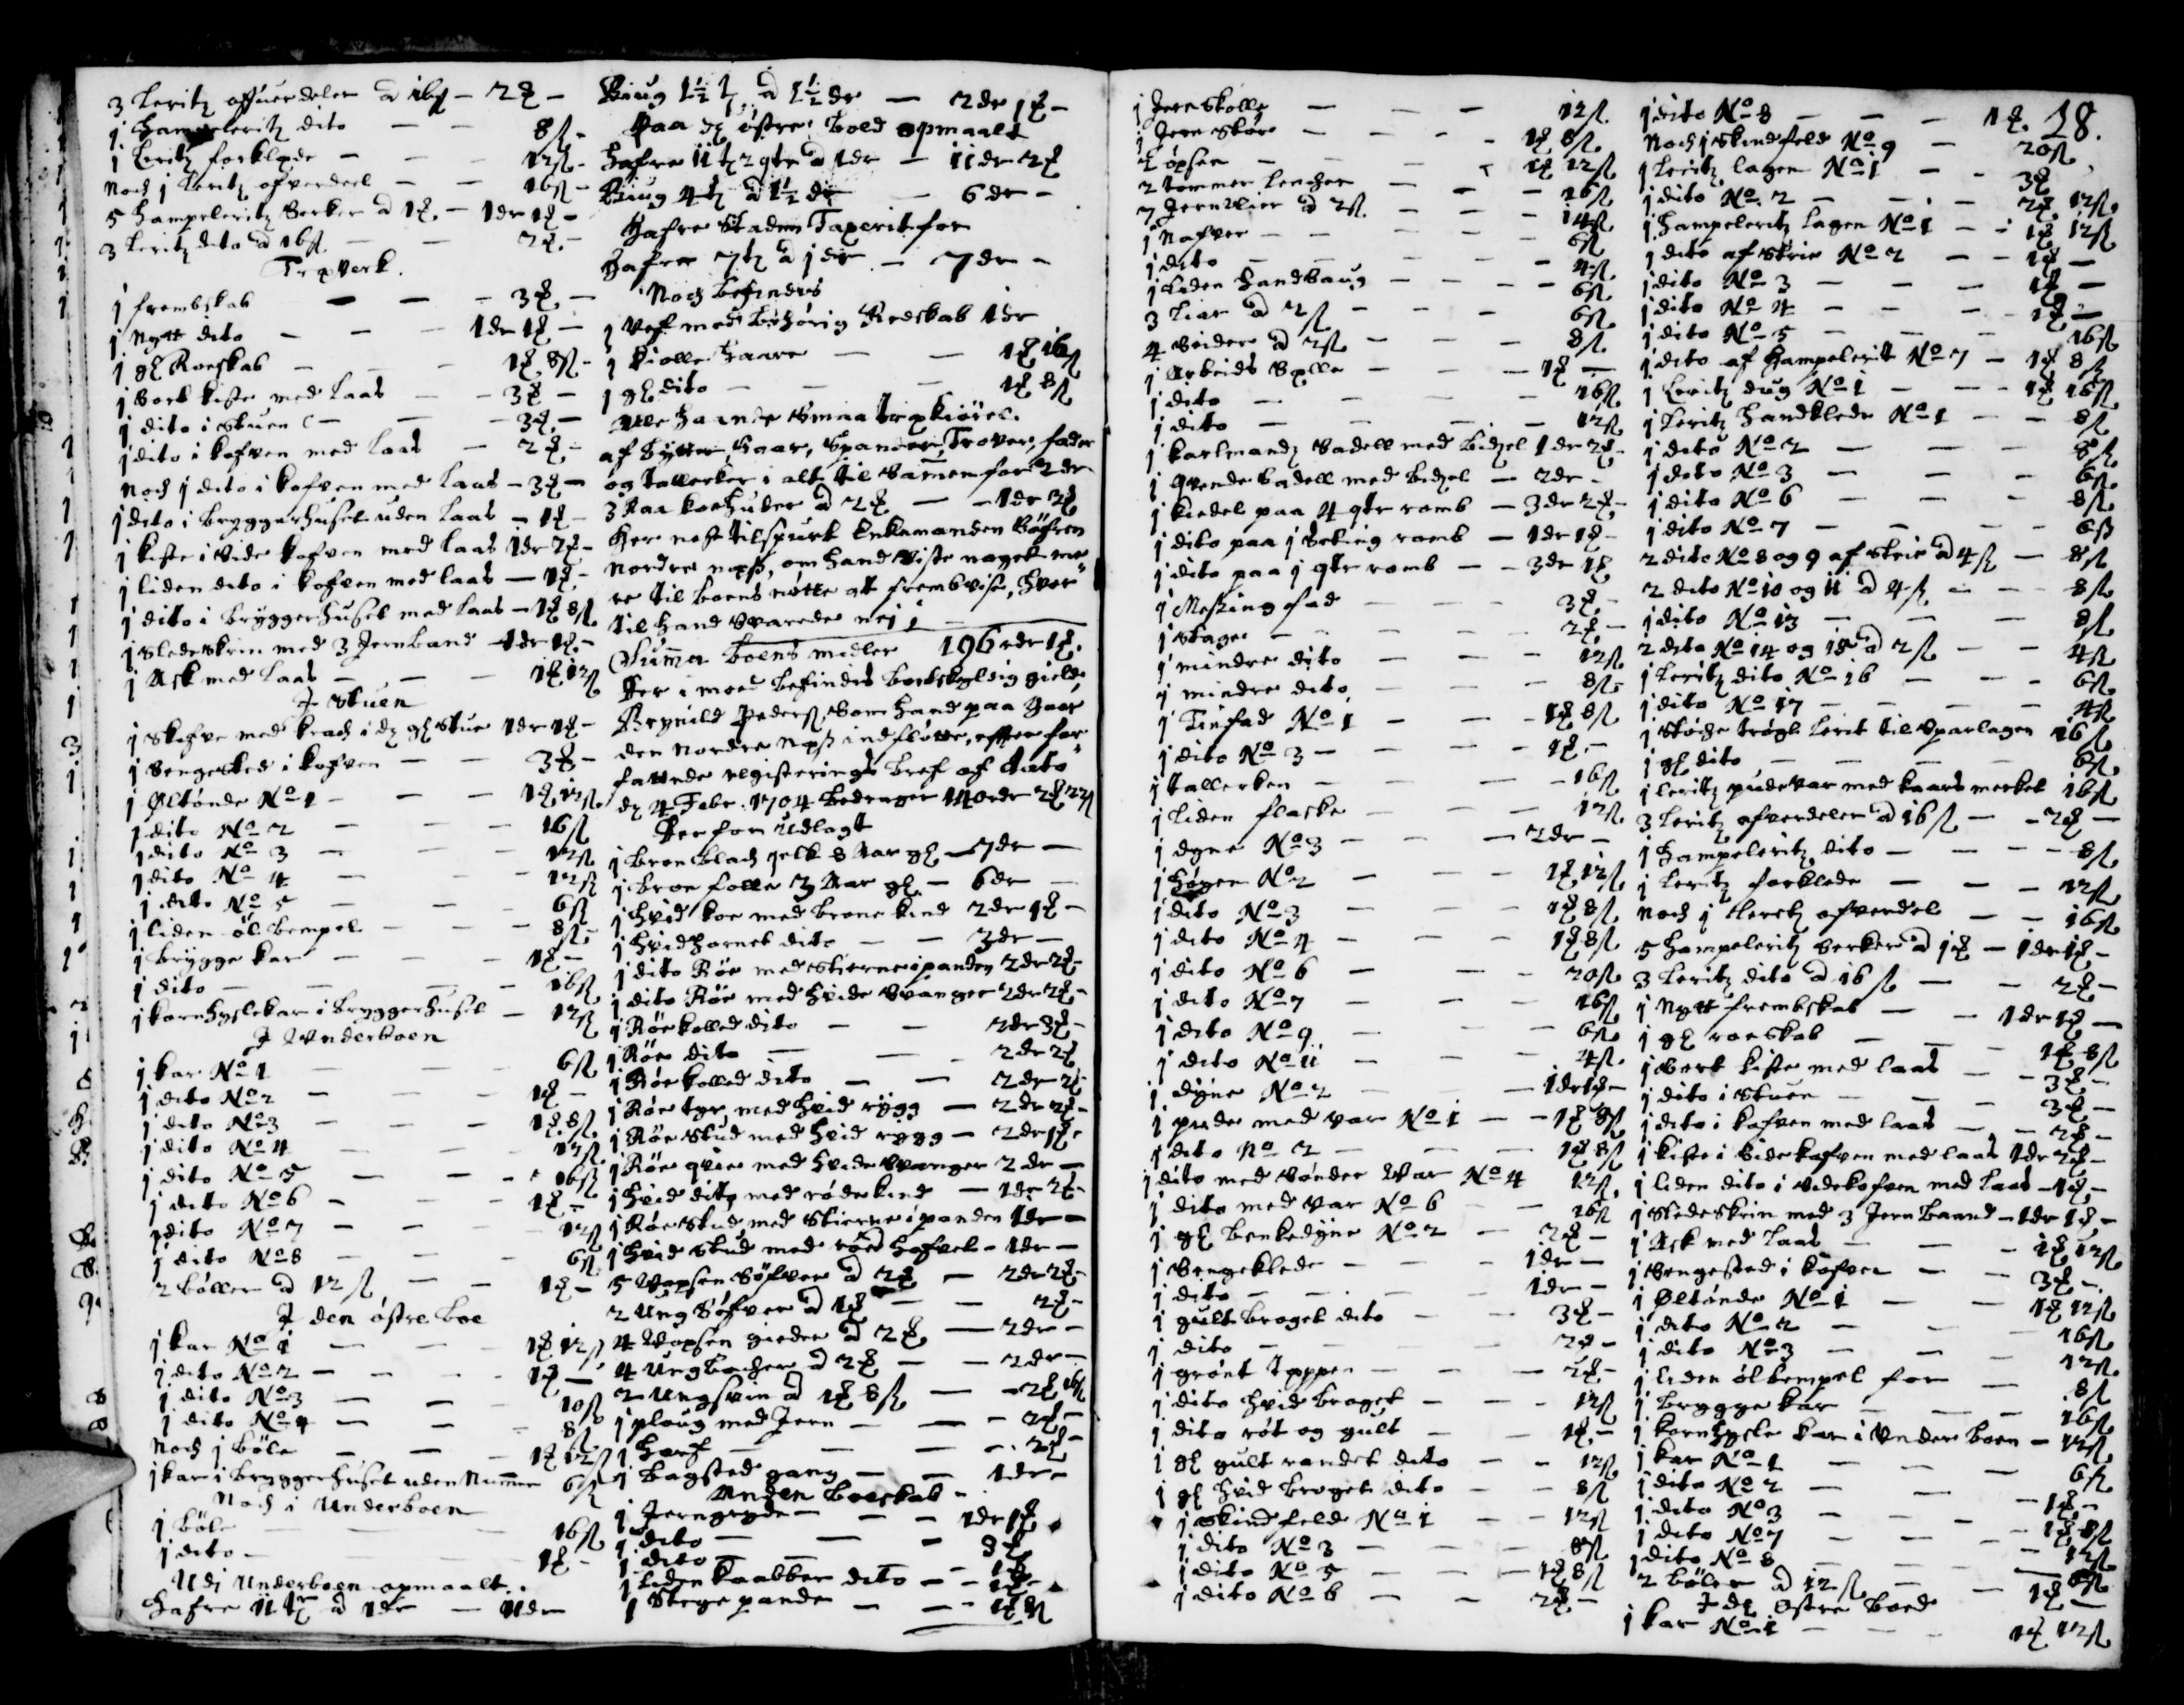 3 Leritz offuerdeler à 16ß – 2 ꝣ –
1 Hampeleritz dito – – 8 ß –
1 Leritz forklæde – – 12 ß –
Noch 1 Leritz ofverdeel – – 16 ß –
5 Hampeleritz Serker à 1 ꝣ – 1 dr 1 ꝣ –
3 Leritz dito à 16 ß – – 2 ꝣ –
Træverk.
1 frembskab – – – 3 ꝣ –
1 Nytt dito – – – 1 dr 1 ꝣ –
1 gl Roeskab – – 1 ꝣ 8 ß –
1 Sort kiste med Laas – – 3 ꝣ –
1 dito i Stuen – – – 3 ꝣ –
1 dito i kofven med Laas – 2 ꝣ –
Noch 1 dito i kofven med Laas – 3 ꝣ –
1 dito i Bryggerhuset uden Laas – 1 ꝣ –
1 kiste i Side kofven med Laas 1 dr 2 ꝣ –
1 liden dito i kofven med laas – 1 ꝣ –
1 dito i Bryggerhuset med Laas – 1 ꝣ 8 ß
1 Sledeskrin med 3 Jernband – 1 dr 1 ꝣ –
1 Ask med Laas – – 1 ꝣ 12 ß
I Stuen
1 Skofve med krach i dz gl Stue 1 dr 1 ꝣ –
1 Sengested i kofven – – 3 ꝣ –
1 Øltønde No 1 – – – 1 ꝣ 12 ß
1 dito No 2 – – – 16 ß
1 dito No 3 – – 12 ß
1 dito No 4 – – 12 ß
1 dito No 5 – – 6 ß
1 liden øl bempel – – – 8 ß –
1 Brygge kar – – – 1 ꝣ –
1 dito – – – – 16 ß
1 kornhyslekar i Bryggerhuset – 12 ß
I Underboen
1 kar No 1 – – – 6 ß
1 dito No 2 – – – 1 ꝣ –
1 dito No 3 – – – 1 ꝣ 8 ß
1 dito No 4 – – – 12 ß
1 dito No 5 – – – 16 ß
1 dito No 6 – – – 1 ꝣ –
1 dito No 7 – – – 12 ß
1 dito No 8 – – – 6 ß
2 Bøller à 12 ß – – 1 ꝣ –
I den østre boe
1 kar No 1 – – – 1 ꝣ 12 ß
1 dito No 2 – – – 1 ꝣ –
1 dito No 3 – – – 10 ß
1 dito No 4 – – – 8 ß
Noch 1 böle – – – 1 ꝣ 12 ß
1 kar i Bryggerhuset uden Nummer 6 ß
Noch i Underboen
1 böle – – – 16 ß
1 dito – – – 1 ꝣ –
Udi Underboen opmaalt.
Hafre 11 tr à 1 dr – 11 dr
Biug 1½ t à 1½ dr – 2 dr 1 ꝣ –
Paa dz østre boed opmaalt
Hafre 11 t 2 qtr à 1 dr – 11 dr 2 ꝣ
Biug 4 t à 1½ dr – 6 dr –
Hafre Staden Taxerit for
Hafre 7 t à 1 dr – 7 dr –
Noch Befindes
1 Vef med behørig Redskab 1 dr
1 kiolle Haare – – 1 ꝣ 16 ß
1 gl dito – – – 1 ꝣ 8 ß
Alle haande Smaa trækiörel.
af bytter, Kaar, Spander, Trover, fader
og tallerker i alt til Samen for 2 dr
3 Raa koehuder à 2 ꝣ – – 1 dr 2 ꝣ
Her nest tilspurt Enkemanden Böfren
Nordre næss, om hand viste noget me"
re til boens nötte at frembvise, hver"
til hand Svarede nej ;
Summa Boens midler 196 rdr 1 ꝣ.
Her i mod befindes bortskyldig gield.
Brynild Peders, som hand paa Gaar
den Nordre Næss indfløtte, efter for"
fattede registerings bref af dato
dz 4 Febr. 1704 bedrager 140 rdr 2 ꝣ 22 ß
Herfor Udlagt
1 bron blach 1elk 8 Aar gl – 7 dr –
1 broe folle 3 Aar gl – 6 dr –
1 hvid koe med brone kind 2 dr 1 ꝣ –
1 hvidhornet dito – – 3 dr –
1 dito Röe med Stierne i panden 2 dr 2 ꝣ –
1 dito Röe med hvide Svanger 2 dr 2 ꝣ –
1 Röe kollet dito – – 2 dr 3 ꝣ –
1 Röe dito – – – 2 dr 2 ꝣ
1 Röe kollet dito – – 2 dr 2 ꝣ –
1 Röe tyr, med hvid rygg – 2 dr 2 ꝣ –
1 Röe Stud med hvid rygg – 2 dr 1 ꝣ –
1 Röe qvie med hvide Svanger 2 dr –
1 hvid dito, med röde kind – 1 dr 2 ꝣ –
1 Röe Stud med Stierne i panden 1 dr –
1 hvid Stud med röe hofvet – 1 dr –
5 Vopsen Söfver à 2 ꝣ – 2 dr 2 ꝣ –
2 Ung Söfver à 1 ꝣ – – 2 ꝣ –
4 Vopsen gieder à 2 ꝣ – 2 dr –
4 Ung Bocher à 2 ꝣ – – 2 dr –
2 Ungsvin à 1 ꝣ 8 ß – – 2 ꝣ 16 ß
1 ploug med Jern – – – 2 ꝣ –
1 Harf – – – – 2 ꝣ –
1 Bagsted gang – – – 1 dr –
Anden boeskab –
1 Jerngryde – – – 1 dr 1 ꝣ
1 dito – – – – 3 ꝣ
1 dito – – – – 1 ꝣ
1 Liden kaabber dito – – 1 ꝣ –
1 Stege pande – – – 1 ꝣ 8 ß
1 Jernskolle – – – 12 ß
1 Jern Skör – – – 1 ꝣ 8 ß
2 öxsen – – – 1 ꝣ 12 ß
2 tommer Lencher – – – 16 ß
7 Jernvlier à 2 ß – – – 14 ß
1 Nafver – – – – 6 ß
1 dito – – – – 4 ß
1 liden Handsaug – – – 6 ß
3 Liar à 2 ß – – – 6 ß
4 Sider à 2 ß – – – 8 ß
1 Arbeids Sælle – – – 1 ꝣ –
1 dito – – – – 16 ß
1 dito – – – – 12 ß
1 karlmandz Sadell med bidzel 1 dr 2 ꝣ –
1 qvende Sadell med bidzel – 2 dr –
1 kiedel paa 4 qtr romb – 3 dr 2 ꝣ –
1 dito paa 1 Seking romb – 1 dr 1 ꝣ –
1 dito paa 1 qtr romb – – 3 dr 1 ꝣ
1 Messing fad – – – 3 ꝣ –
1 Stage – – – – 2 ꝣ –
1 mindre dito – – – 12 ß
1 mindre dito – – – 8 ß –
1 Tinfad No 1 – – – 1 ꝣ 8 ß
1 dito No 3 – – – 1 ꝣ –
1 tallerken – – – 16 ß
1 Liden flaske – – – 12 ß
1 dyne No 3 – – – 2 dr –
1 Högen No 2 – – – 1 ꝣ 12 ß
1 dito No 3 – – – 1 ꝣ 8 ß
1 dito No 4 – – – 1 ꝣ 8 ß
1 dito No 6 – – – 20 ß
1 dito No 7 – – – 16 ß
1 dito No 9 – – – 6 ß
1 dito No 11 – – – 4 ß
1 dyne No 2 – – – 1 dr 1 ꝣ –
1 pude med var No 1 – – 1 ꝣ 8 ß
1 dito No 2 – – – 1 ꝣ 8 ß
1 dito med Sönder Var No 4 12 ß
1 dito med var No 6 – – 16 ß
1 gl benkedyne No 2 – 2 ꝣ –
1 Sengeklede – – – 1 dr –
1 dito – – – – 1 dr –
1 gult broget dito – – 3 ꝣ –
1 dito – – – – 2 ꝣ –
1 grönt Teppen – – – 2 ꝣ –
1 dito hvid broget – – – 12 ß
1 dito röt og gult – – 1 ꝣ –
1 gl gult randet dito – – 12 ß
1 gl hvid broget dito – – 8 ß
1 Skindfeld No 1 – – 12 ß
1 dito No 3 – – – 8 ß
1 dito No 5 – – – 1 ꝣ 8 ß
1 dito No 6 – – – 2 ꝣ –
28.
1 dito No 8 – – – 1 ꝣ.
Noch 1 Skindfeld No 9 – 20 ß
1 Leritz lagen No 1 – – 3 ꝣ
1 dito No 2 – – – 2 ꝣ 12 ß
1 Hampeleritz lagen No 1 – – 1 ꝣ 12 ß
1 dito af Strie No 2 – – 1 ꝣ –
1 dito No 3 – – – 1 ꝣ –
1 dito No 4 – – – 1 ꝣ –
1 dito No 5 – – – 16 ß
1 dito af Hampelerit No 7 – 1 ꝣ 8 ß
1 Leritz dug No 1 – – – 1 ꝣ 16 ß
1 Leritz Handklede No 1 – – 8 ß
1 dito No 2 – – – 8 ß
1 dito No 3 – – – 6 ß
1 dito No 6 – – – 8 ß
1 dito No 7 – – – 6 ß
2 dito No 8 og 9 af Strie à 4 ß – 8 ß
2 dito No 10 og 11 à 4 ß – – 8 ß
1 dito No 13 – – – 8 ß
2 dito No 14 og 18 à 2 ß – – 4 ß
1 Leritz dito No 16 – – – 6 ß
1 dito No 17 – – – – 4 ß
1 Støche trögl Lerit til Sparlagen 16 ß
1 gl dito – – – – 6 ß
1 Leritz pudevar med kaars merket 16 ß
3 Leritz ofverdeler à 16 ß – – 2 ꝣ –
1 Hampeleritz dito – – – 8 ß
1 Leritz forklede – – – 12 ß
Noch 1 Leritz ofverdel – – 16 ß
5 Hampeleritz Serker à 1 ꝣ – 1 dr 1 ꝣ –
3 Leritz dito à 16 ß – – 2 ꝣ –
1 Nytt frembskab – – 1 dr 1 ꝣ –
1 gl roeskab – – – 1 ꝣ 8 ß
1 Sort kiste med laas – – 3 ꝣ –
1 dito i Stuen – – – 3 ꝣ –
1 dito i kofven med laas – – 2 ꝣ –
1 kiste i Sidekofven med laas 1 dr 2 ꝣ –
1 liden dito i Sidekofven med Laas – 1 ꝣ –
1 Sledeskrin med 3 Jern Baand – 1 dr 1 ꝣ –
1 Ask med Laas – – – 1 ꝣ 12 ß
1 Sengested i kofven – – 3 ꝣ –
1 Øltønde No 1 – – 1 ꝣ 12 ß
1 dito No 2 – – – 16 ß
1 dito No 3 – – – 12 ß
1 liden öl bempel for – – 8 ß
1 brygge kar – – – 16 ß
1 kornhysle kar i Underboen – 12 ß
1 kar No 1 – – – 6 ß
1 dito No 2 – – – 1 ꝣ –
1 dito No 3 – – – 1 ꝣ 8 ß
1 dito No 7 – – – 12 ß
1 dito No 8 – – – 6 ß
2 böler à 12 ß – – 1 ꝣ –
I dz østre Boed
1 kar No 1 – – – 1 ꝣ 12 ß